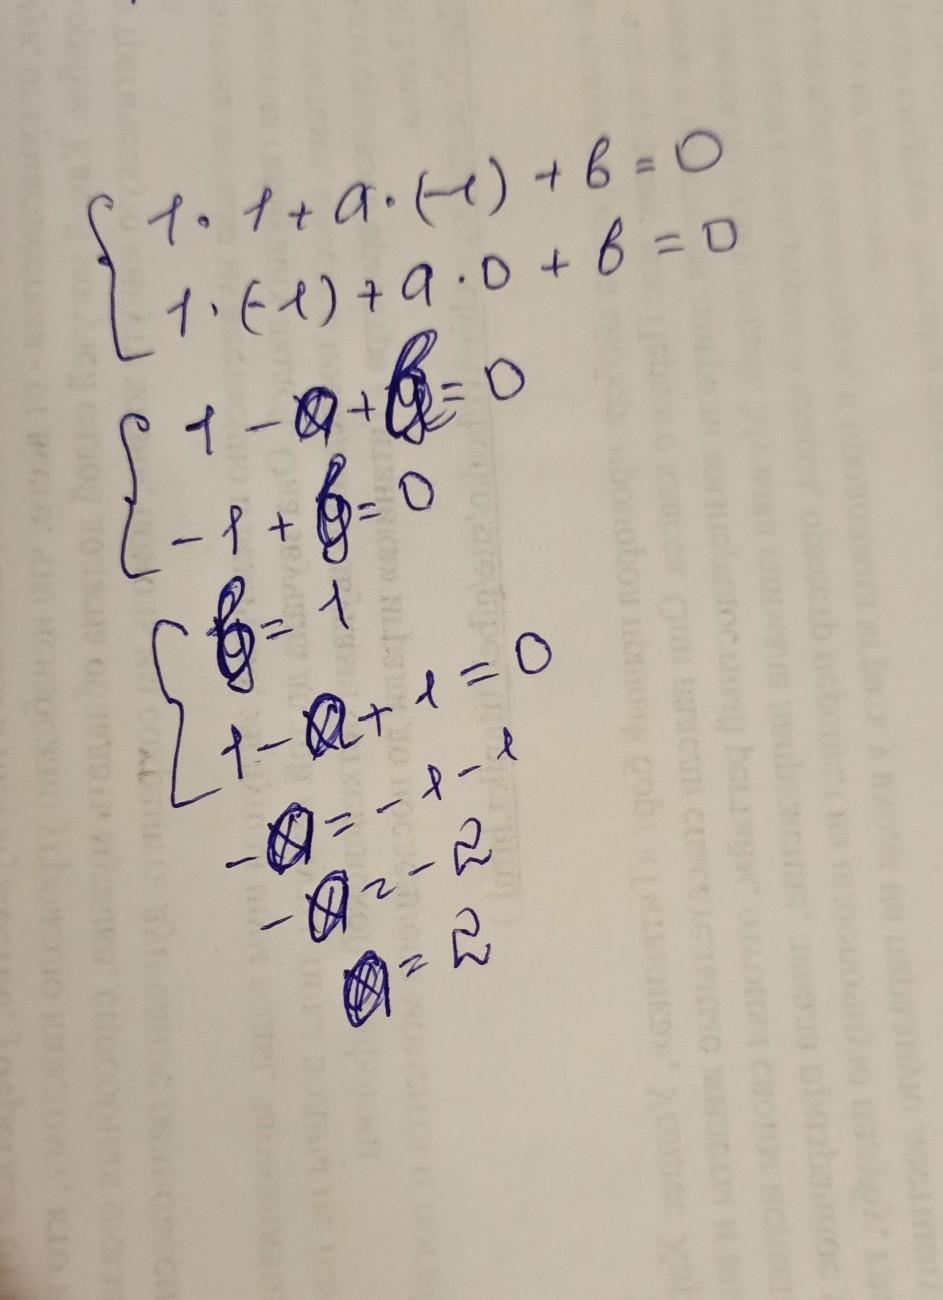 1·1+a·(-1)+b=0
1·(-1)+a·0+b=0
1-a+b=0
-1+b=0
b=1
1-a+1=0
-a=-1-1
-a=-2
a=2